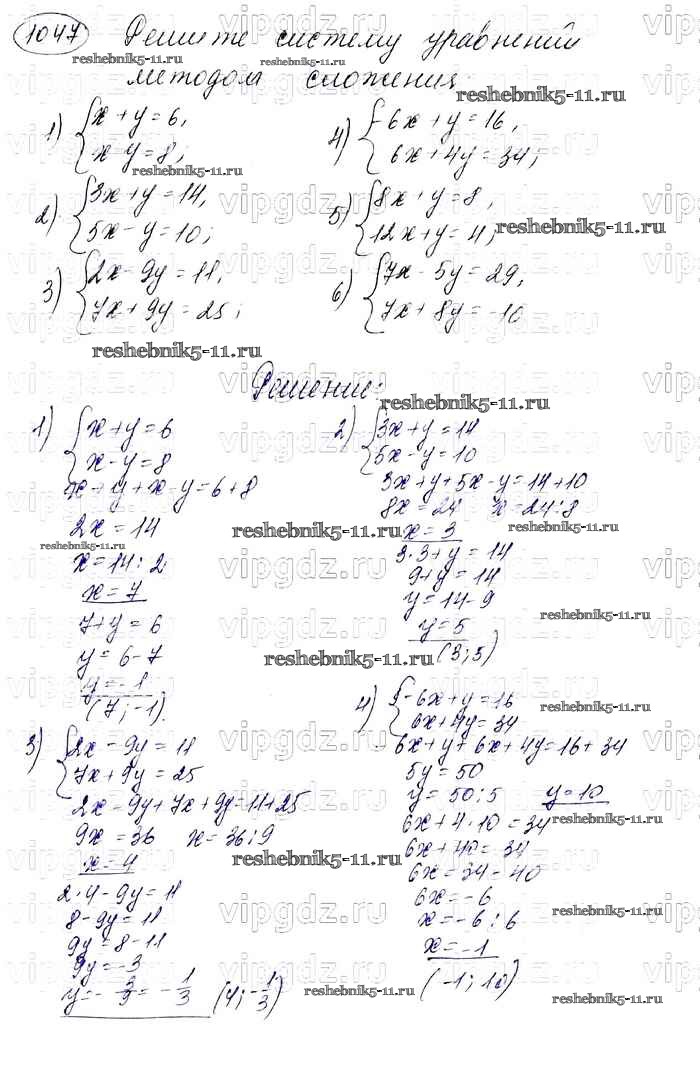 1047 Решите систему уравнений
методом сложения:
1) { x + y = 6,
x - y = 8;
2) { 3x + y = 14,
5x - y = 10;
3) { 2x - 9y = 11,
7x + 9y = 25;
4) { -6x + y = 16,
6x + 4y = 34;
5) { 8x + y = 8,
12x + y = 4;
6) { 7x - 5y = 29,
7x + 8y = -10
Решение:
1) { x + y = 6
x - y = 8
x + y + x - y = 6 + 8
2x = 14
x = 14 : 2
x = 7
7 + y = 6
y = 6 - 7
y = -1
(7; -1).
2) { 3x + y = 14
5x - y = 10
3x + y + 5x - y = 14 + 10
8x = 24 x = 24 : 8
x = 3
3·3 + y = 14
9 + y = 14
y = 14 - 9
y = 5
(3; 5)
3) { 2x - 9y = 11
7x + 9y = 25
2x - 9y + 7x + 9y = 11 + 25
9x = 36 x = 36 : 9
x = 4
2·4 - 9y = 11
8 - 9y = 11
9y = 8 - 11
9y = -3
y = -3/9 = -1/3 (4; -1/3)
4) { -6x + y = 16
6x + 4y = 34
-6x + y + 6x + 4y = 16 + 34
5y = 50
y = 50 : 5 y = 10
6x + 4·10 = 34
6x + 40 = 34
6x = 34 - 40
6x = -6
x = -6 : 6
x = -1
(-1; 10)
reshebnik5-11.ru
vipgdz.ru